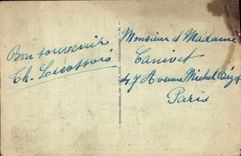 Bon souvenir
Ch.
Monsieur et Madame
Canivet
47 Avenue Michel Bizot
Paris